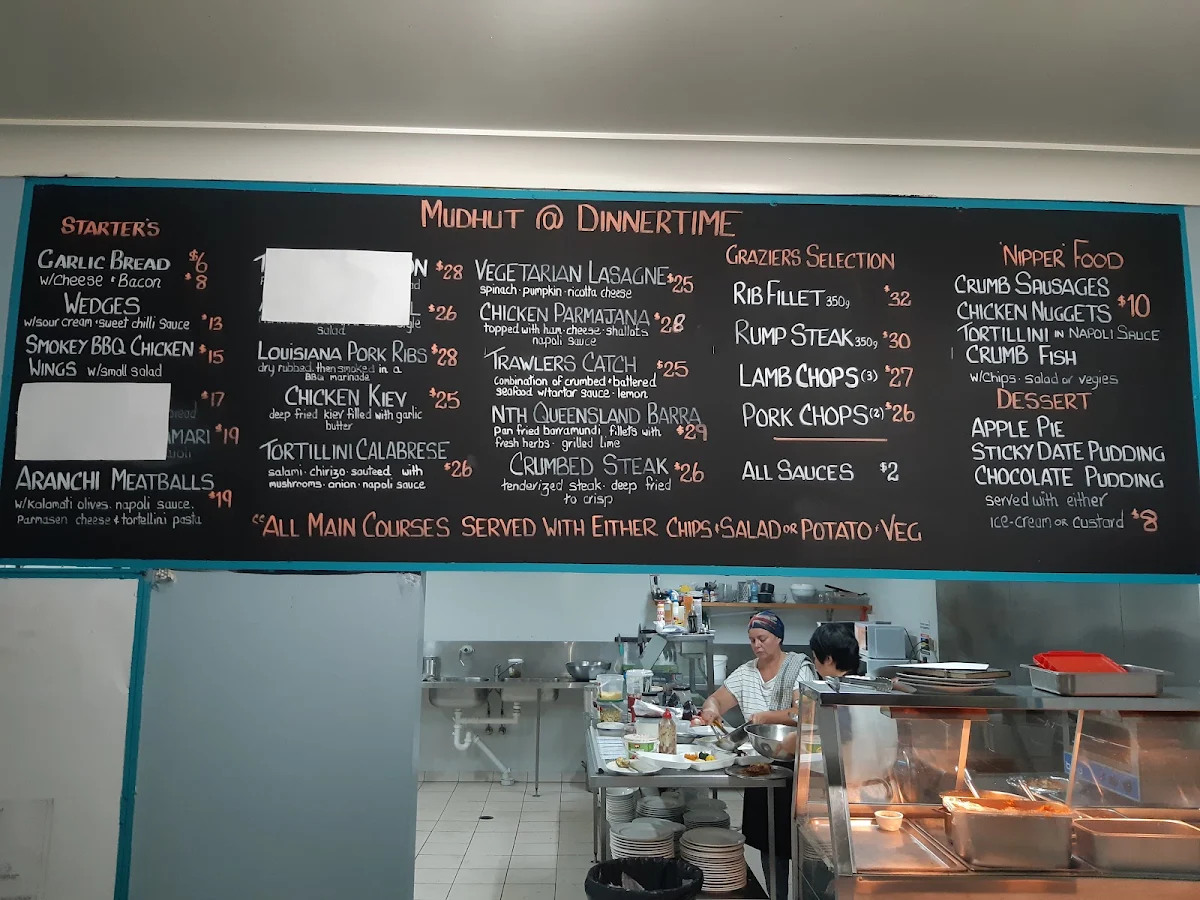 MUDHUT @ DINNERTIME
STARTER'S
GARLIC BREAD $6
w/Cheese & Bacon $8
WEDGES
w/sour cream · sweet chilli sauce $13
SMOKEY BBQ CHICKEN $15
WINGS w/small salad
$17
AMARI $19
ARANCHI MEATBALLS
w/Kalamati olives. napoli sauce. $19
parmasen cheese & tortellini pasta
N $28
$26
salad
LOUISIANA PORK RIBS $28
dry rubbed. then smoked in a
BBQ marinade
CHICKEN KIEV $25
deep fried kiev filled with garlic
butter
TORTILLINI CALABRESE
salami · chirizo · sauteed with $26
mushrooms · onion · napoli sauce
VEGETARIAN LASAGNE $25
spinach · pumpkin · ricotta cheese
CHICKEN PARMAJANA $28
topped with ham · cheese · shallots
napoli sauce
TRAWLERS CATCH $25
combination of crumbed & battered
seafood w/tartar sauce · lemon
NTH QUEENSLAND BARRA
pan fried barramundi fillets with $29
fresh herbs · grilled lime
CRUMBED STEAK $26
tenderized steak · deep fried
to crisp
GRAZIERS SELECTION
RIB FILLET 350g $32
RUMP STEAK 350g $30
LAMB CHOPS (3) $27
PORK CHOPS (2) $26
ALL SAUCES $2
'NIPPER' FOOD
CRUMB SAUSAGES
CHICKEN NUGGETS $10
TORTILLINI IN NAPOLI SAUCE
CRUMB FISH
w/Chips · salad or vegies
DESSERT
APPLE PIE
STICKY DATE PUDDING
CHOCOLATE PUDDING
served with either
ice-cream or custard $8
ALL MAIN COURSES SERVED WITH EITHER CHIPS & SALAD OR POTATO & VEG